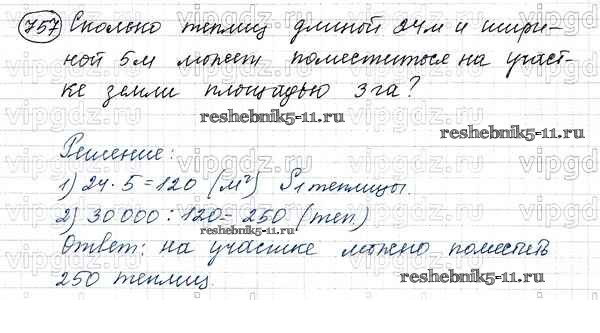 757 Сколько теплиц длиной 24м и шири-
ной 5м может поместиться на участ-
ке земли площадью 3га?
reshebnik5-11.ru
reshebnik5-11.ru
Решение:
1) 24 · 5 = 120 (м²) S 1 теплицы.
2) 30 000 : 120 = 250 (теп)
Ответ: на участке можно поместить
250 теплиц.
reshebnik5-11.ru